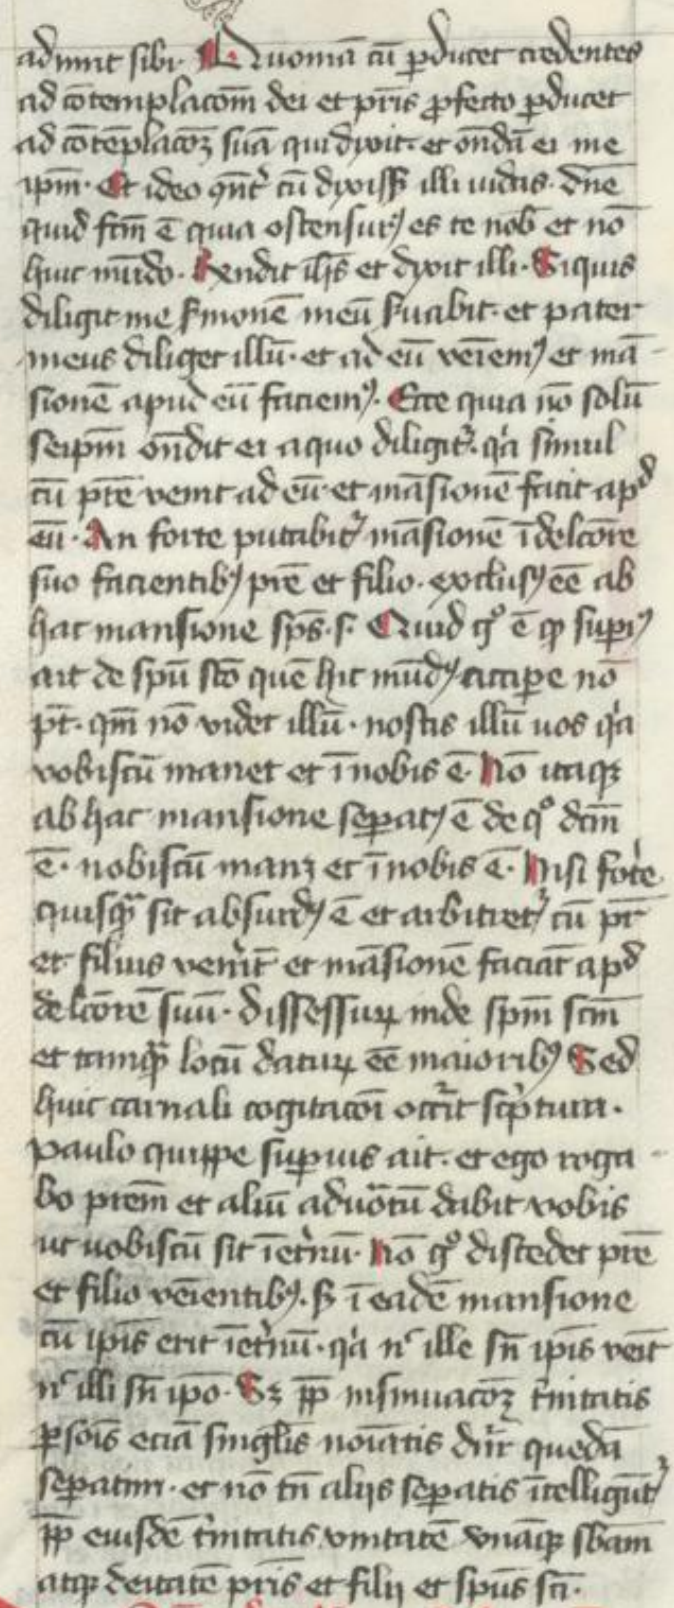 adimit sibi. Quoniā cū ꝑducet credentes
ad cōtemplacoēm dei et pr̄is ꝓfecto ꝑducet
ad cōtēplacōꝫ suā qui dixit. et ōndā ei me
ip̄m. Et ideo ↄn̄tr̄ cū dixiss; illi iudas. dn̄e
quid fc̄m ē quia ostensurꝰ es te nob̄ et nō
huic mūdo. Rendit ih̄s et dixit illi. Siquis
diligit me s̄monē meū s̄uabit. et pater
meus diliget illū. et ad eū veniemꝰ et mā-
sionē apud eū faciemꝰ. Ecce quia nō solū
seip̄m ōndit ei a quo diligit᷑. qͥa simul
cū ptr̄e venit ad eū et māsionē facit apᵈ
eū. An forte putabit᷑ māsionē ī dilc̄ore
suo facientibꝰ pr̄e et filio. exclusꝰ eē ab
hac mansione sp̄s. s. Quid gͦ ē ꝙ supiꝰ
ait de sp̄u sc̄o quē hic mūdꝰ accipe nō
pt̄. qm̄ nō videt illū. nostis illū uos qͥa
vobiscū manet et ī nobis ē. Nō itaqꝫ
ab hac mansione sepatꝰ ē de qͦ dc̄m
ē. nobiscū manꝫ et ī nobis ē. Nisi forͭe
quisqᷓ sit absurdꝰ ē et arbitret᷑ cū pr̄
et filius vener̄t et māsionē faciāt apᵈ
dilc̄orē suū. dissessuꝝ inde sp̄m sc̄m
et tamqᷓ locū datuꝝ eē maioribꝰ Sed
huic carnali cogitacōi occr̄it sc̓ptura.
paulo quippe superius ait. et ego roga-
bo prēm et aliū aduōtū dabit vobis
ut uobiscū sit īet̓nū. Nō gͦ discedet pr̄e
et filio veīentibꝰ. s̄ ī eadē mansione
cū ip̄is erit īet̓nū. qͥa nᶜ ille sn̄ ip̄is veīt
nᶜ illi sn̄ ip̄o. Sꝫ pp̄ insinuacōꝫ tͥnitatis
ꝑsoīs eciā singl̄is noīatis dn̄r quedā
sepatim. et nō tn̄ aliis sepatis ītelligūt᷑
pp̄ eiusdē tͥnitatis vnitatē vnāqꝫ sb̄am
atqꝫ deitatē pr̄is et filij et sp̄us sc̄i.